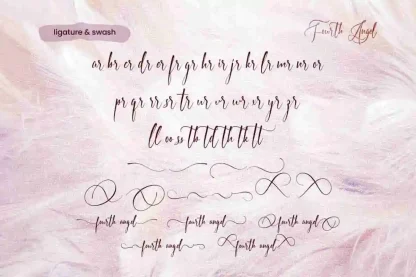 ligature & swash
Fourth Angel
ar br cr dr er fr gr hr ir jr kr lr mr nr or
pr qr rr sr tr ur vr wr xr yr zr
ll oo ss tb td th tk tt
fourth angel fourth angel fourth angel
fourth angel fourth angel